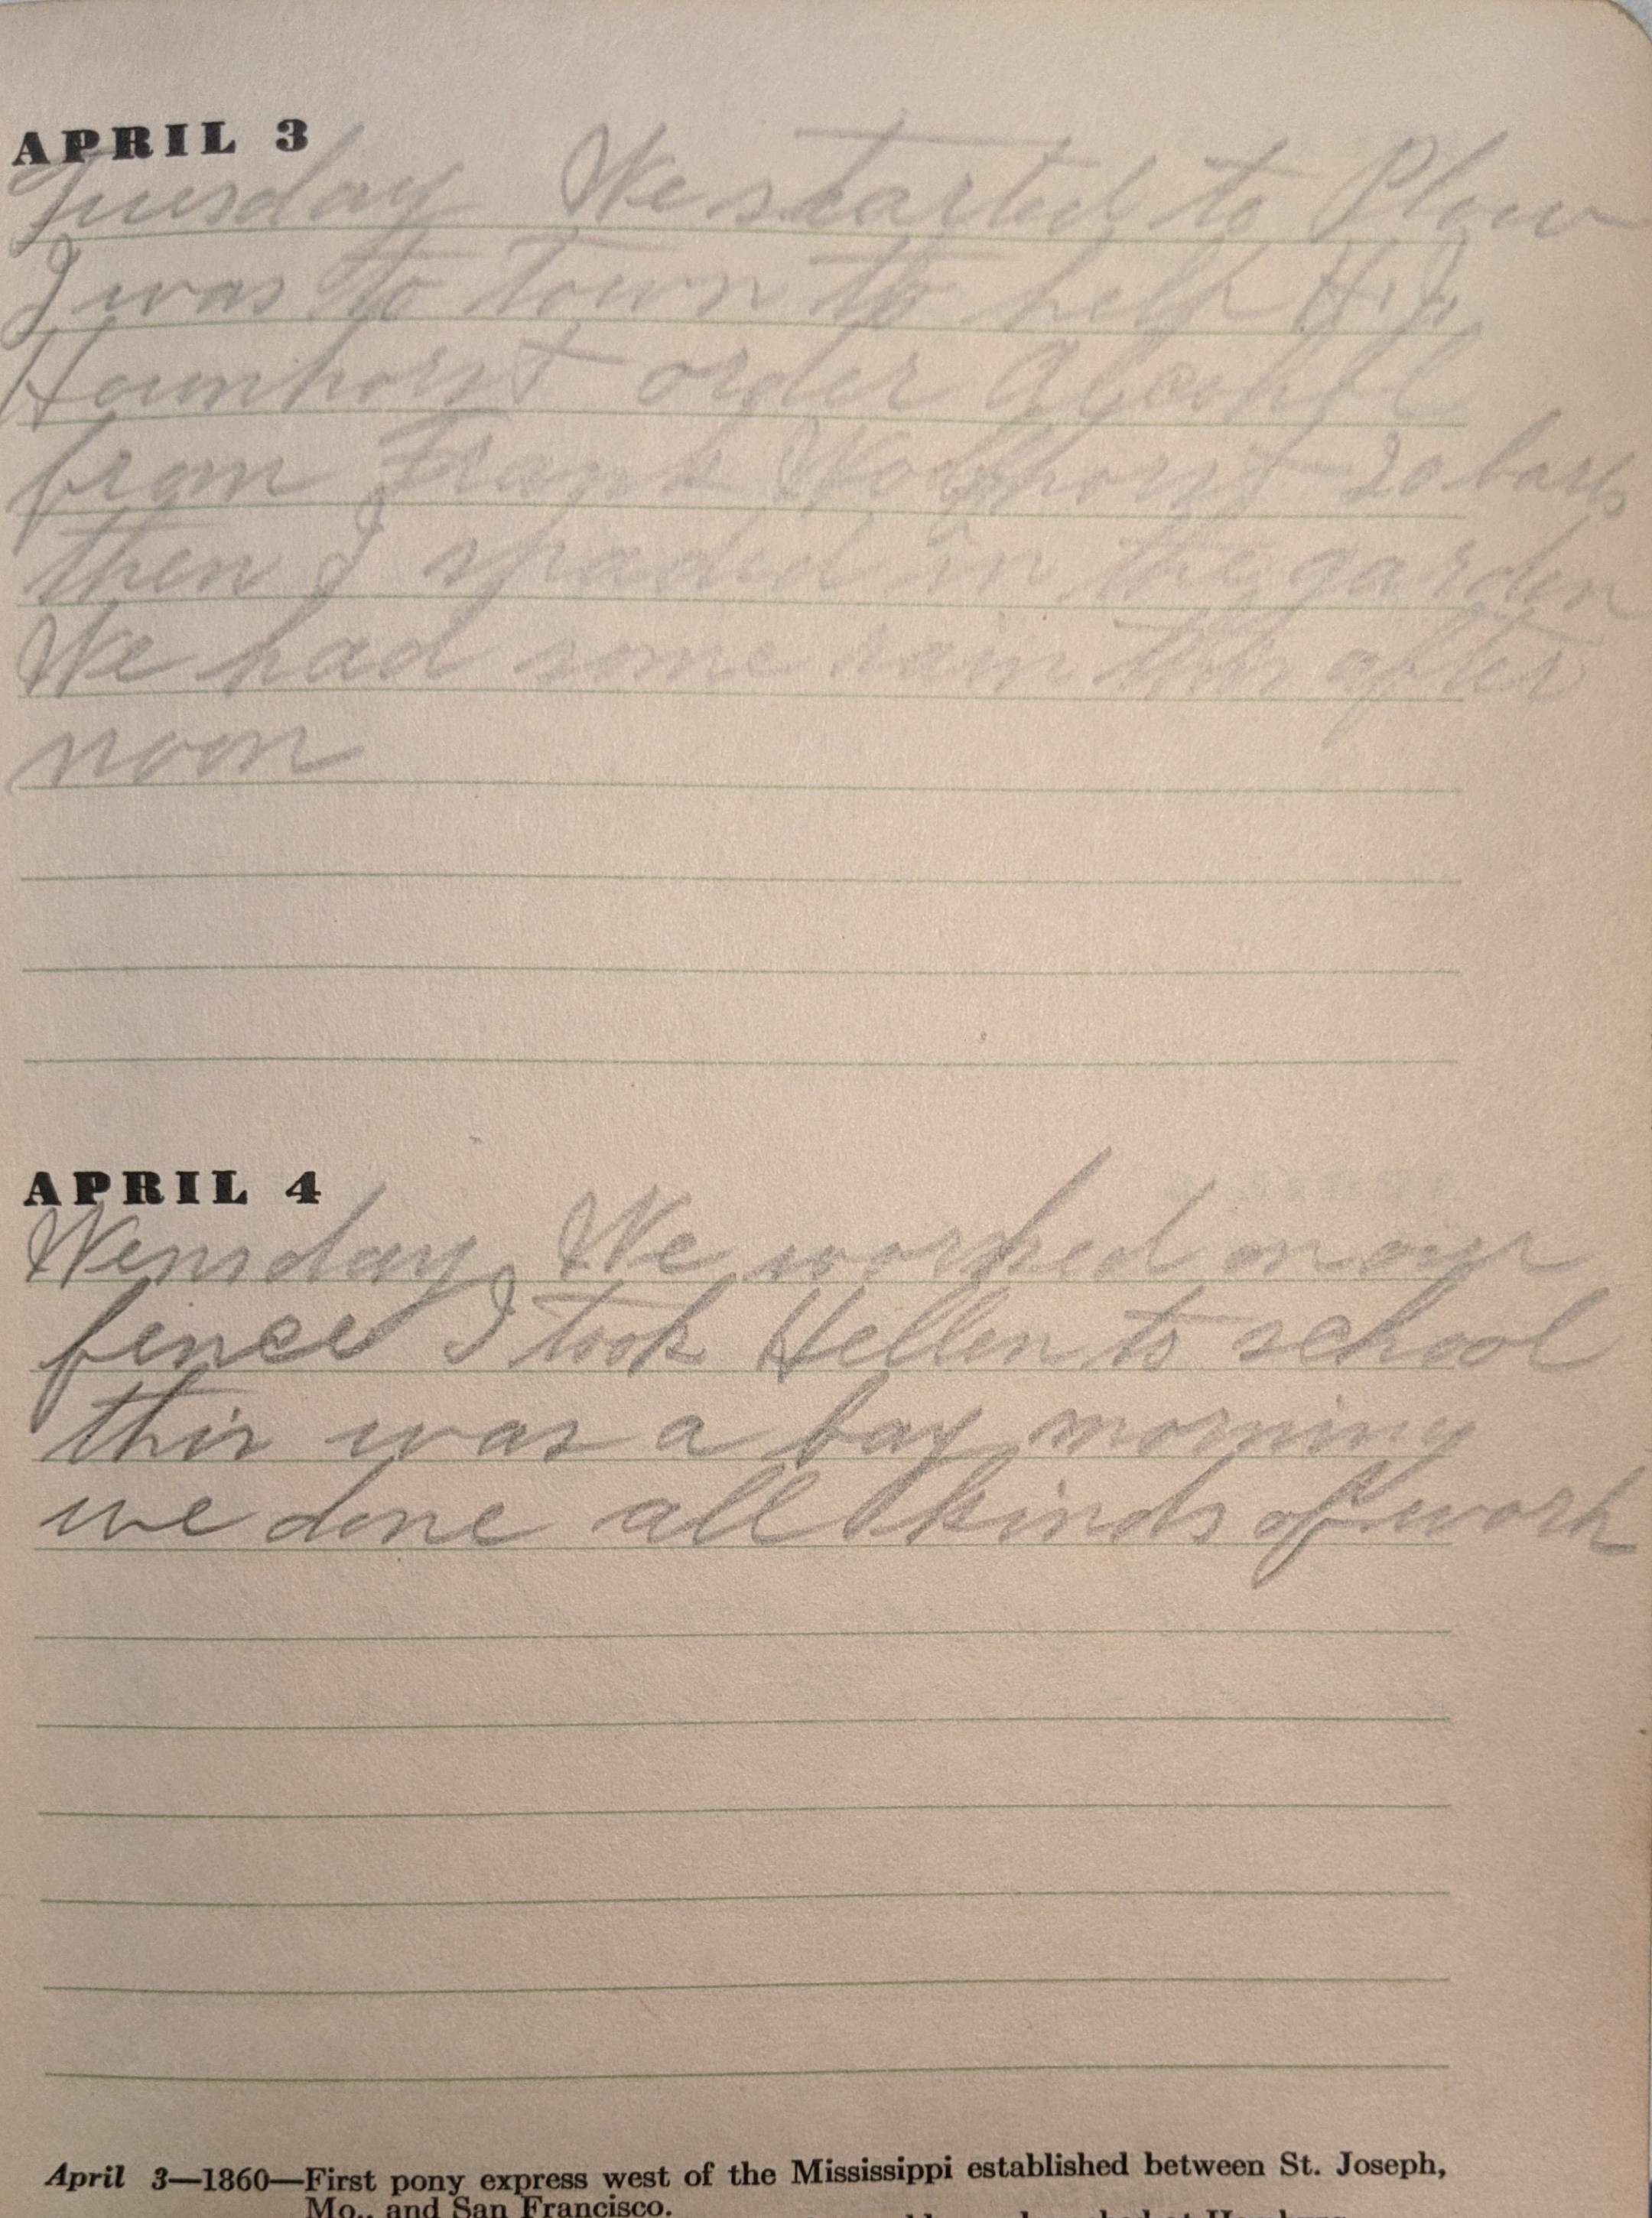 APRIL 3
Tuesday We started to Plow
I was to town to help H.J.
Hounhorst order Alcohol
from Frank 20 
then I spaded in the garden
We had some rain this after
noon
APRIL 4
Wensday We worked on our
fence I took Hellen to school
this was a fay morning
we done all kinds of work
April 3—1860—First pony express west of the Mississippi established between St. Joseph,
Mo., and San Francisco.